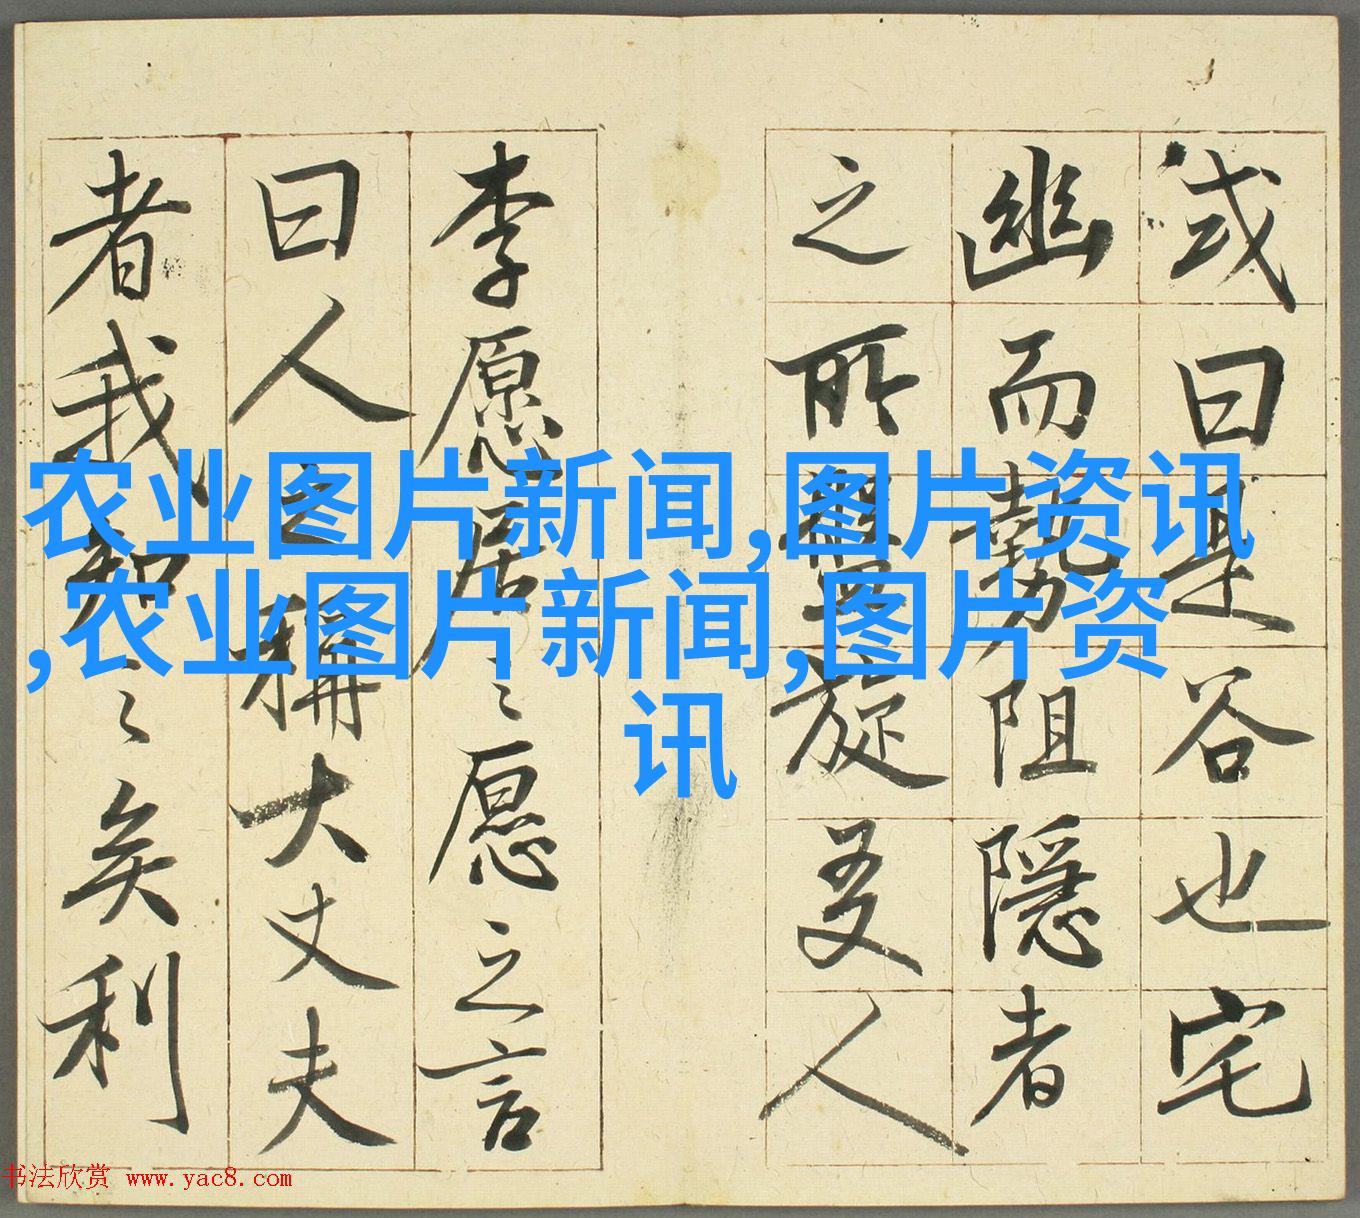 或曰是谷也宅
幽而勢阻隱者
之所盤旋友人
李愿居之愿之言
曰人之稱大丈夫
者我知之矣利
农业图片新闻,图片资讯
,农业图片新闻,图片资
讯
书法欣赏 www.yac8.com